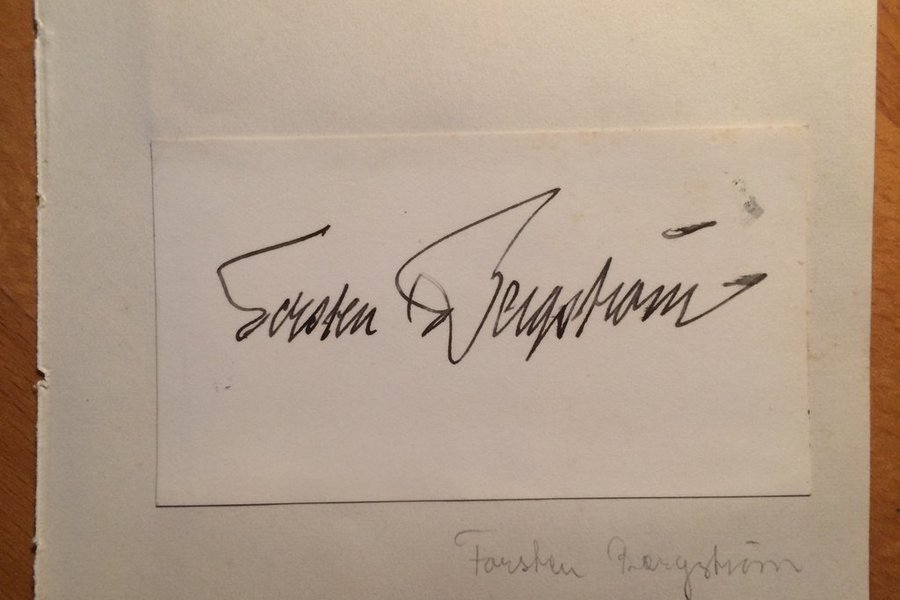 Torsten Bergström
Torsten Bergström